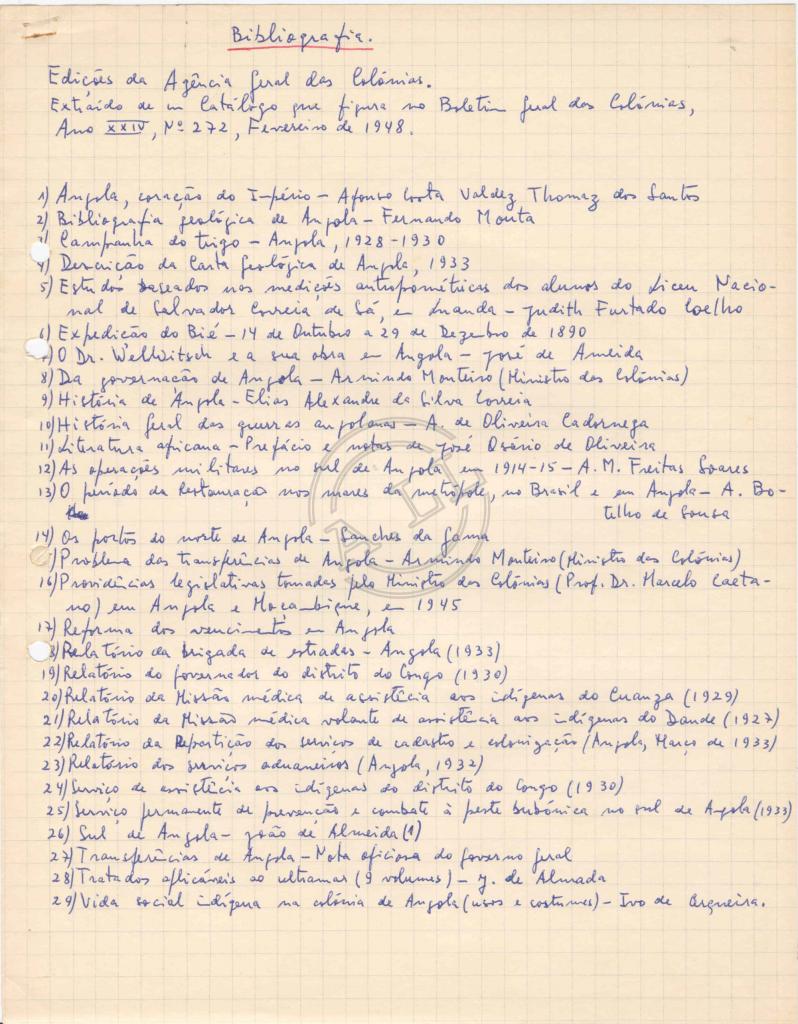 Bibliografia.
Edições da Agência Geral das Colónias.
Extraído de um Catálogo que figura no Boletim Geral das Colónias,
Ano XXIV, Nº 272, Fevereiro de 1948.
1) Angola, coração do Império - Afonso Costa Valdez Thomaz dos Santos
2) Bibliografia geológica de Angola - Fernando Mouta
3) Campanha do trigo - Angola, 1928-1930
4) Descrição da Carta Geológica de Angola, 1933
5) Estudos baseados nas medições antropométricas dos alunos do Liceu Nacio-
nal de Salvador Correia de Sá, em Luanda - Judith Furtado Coelho
6) Expedição do Bié - 14 de Outubro a 29 de Dezembro de 1890
7) O Dr. Welwitsch e a sua obra em Angola - José de Almeida
8) Da governação de Angola - Armindo Monteiro (Ministro das Colónias)
9) História de Angola - Elias Alexandre da Silva Correia
10) História Geral das guerras angolanas - A. de Oliveira Cadornega
11) Literatura africana - Prefácio e notas de José Osório de Oliveira
12) As operações militares no sul de Angola em 1914-15 - A. M. Freitas Soares
13) O período da Restauração nos mares da metrópole, no Brasil e em Angola - A. Bo-
telho de Sousa
14) Os portos do norte de Angola - Sanches da Gama
) Problema das transferências de Angola - Armindo Monteiro (Ministro das Colónias)
16) Providências legislativas tomadas pelo Ministro das Colónias (Prof. Dr. Marcelo Caeta-
no) em Angola e Moçambique, em 1945
17) Reforma dos vencimentos em Angola
8) Relatório da brigada de estradas - Angola (1933)
19) Relatório do governador do distrito do Congo (1930)
20) Relatório da Missão médica de assistêcia aos indígenas do Cuanza (1929)
21) Relatório da Missão médica volante de assistência aos indígenas do Dande (1927)
22) Relatório da Repartição dos serviços de cadastro e colonização (Angola, Março de 1933)
23) Relatório dos serviços aduaneiros (Angola, 1932)
24) Serviço de assistência aos indígenas do distrito do Congo (1930)
25) Serviço permanente de prevenção e combate à peste bubónica no sul de Angola (1933)
26) Sul de Angola - João de Almeida (1)
27) Transferências de Angola - Nota oficiosa do governo geral
28) Tratados aplicáveis ao ultramar (9 volumes) - J. de Almada
29) Vida social indígena na colónia de Angola (usos e costumes) - Ivo de Cerqueira.